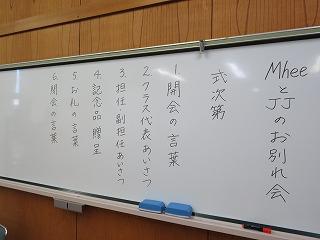 MheeとJJのお別れ会
式次第
1.開会の言葉
2.クラス代表あいさつ
3.担任・副担任あいさつ
4.記念品贈呈
5.お礼の言葉
6.閉会の言葉